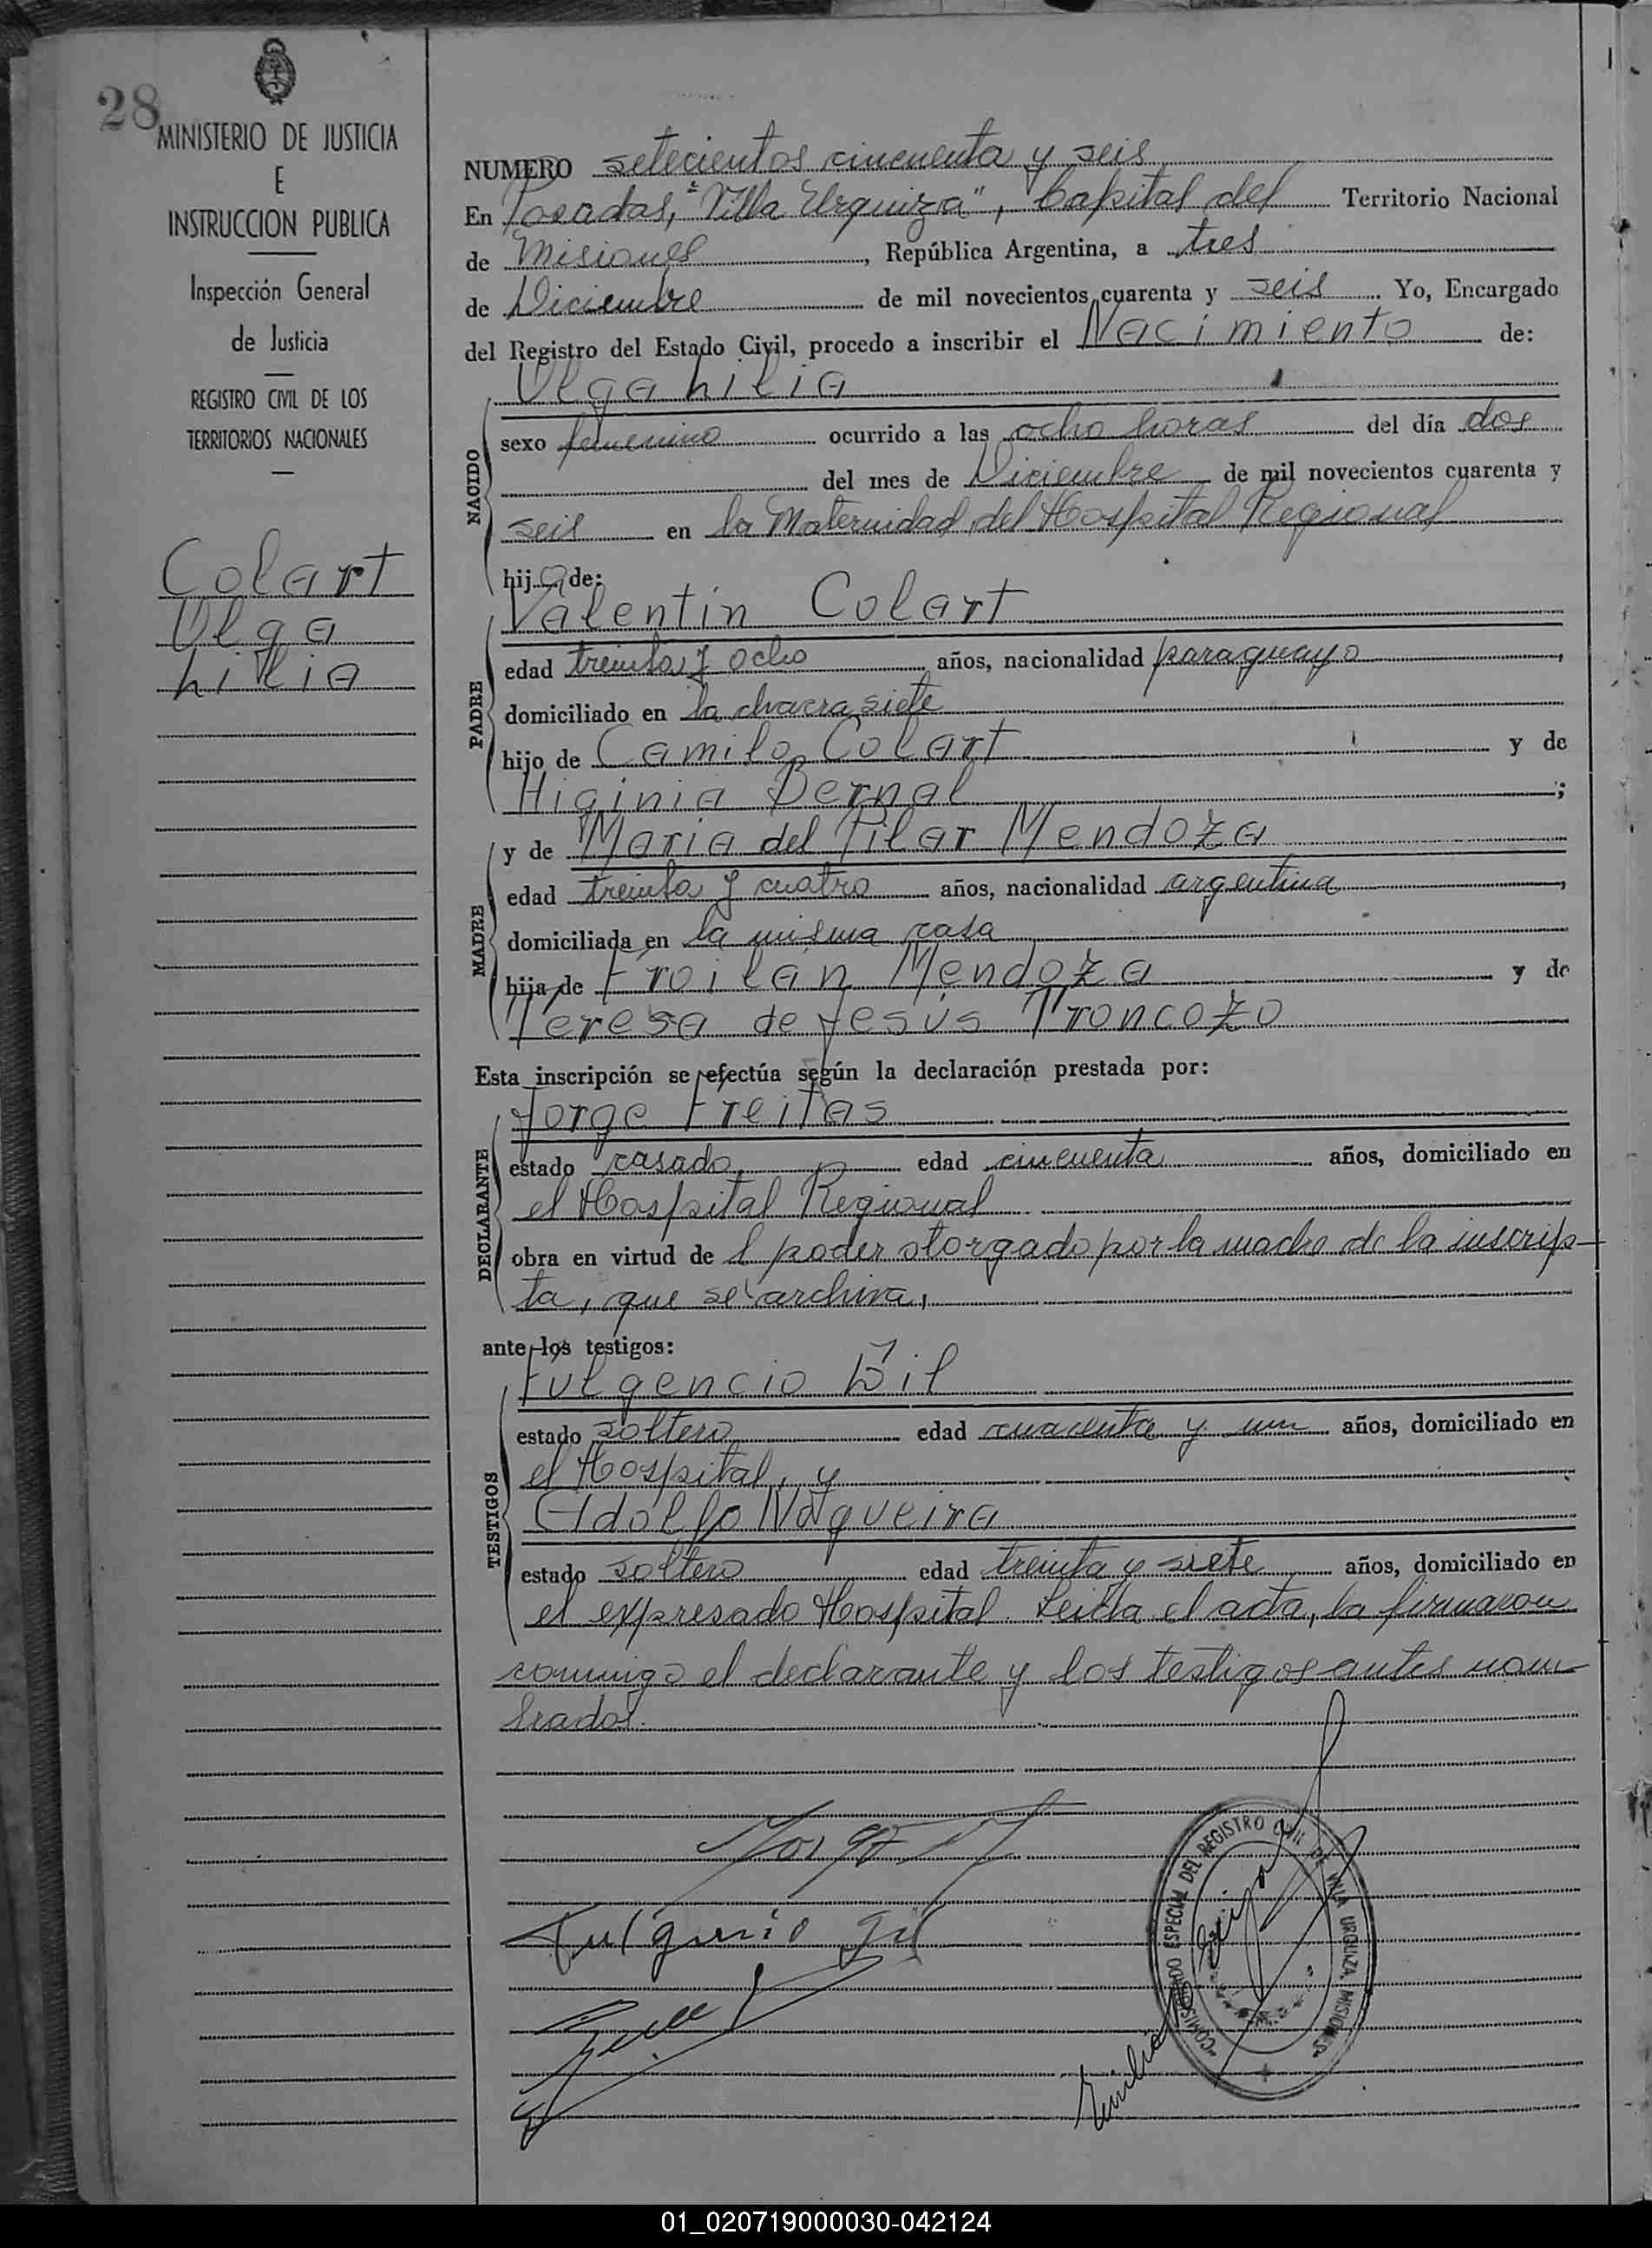 28
MINISTERIO DE JUSTICIA
E
INSTRUCCION PUBLICA
Inspección General
de Justicia
REGISTRO CIVIL DE LOS
TERRITORIOS NACIONALES
Colart
Olga
Lilia
NUMERO setecientos cincuenta y seis
En Posadas, "Villa Urquiza", Capital del Territorio Nacional
de Misiones, República Argentina, a tres
de Diciembre de mil novecientos cuarenta y seis. Yo, Encargado
del Registro del Estado Civil, procedo a inscribir el Nacimiento de:
Olga Lilia
NACIDO
sexo femenino ocurrido a las ocho horas del día dos
del mes de Diciembre de mil novecientos cuarenta y
seis en la Maternidad del Hospital Regional
hija de:
Valentín Colart
PADRE
edad treinta y ocho años, nacionalidad paraguayo,
domiciliado en la chacra siete
hijo de Camilo Colart y de
Higinia Bernal;
y de María del Pilar Mendoza
MADRE
edad treinta y cuatro años, nacionalidad argentina,
domiciliada en la misma casa
hija de Froilán Mendoza y de
Teresa de Jesús Troncozo
Esta inscripción se efectúa según la declaración prestada por:
Jorge Freitas
DECLARANTE
estado casado, edad cincuenta años, domiciliado en
el Hospital Regional
obra en virtud del poder otorgado por la madre de la inscrip-
ta, que se archiva,
ante los testigos:
Fulgencio Gil
TESTIGOS
estado soltero edad cuarenta y un años, domiciliado en
el Hospital, y
Adolfo Noqueira
estado soltero edad treinta y siete años, domiciliado en
el expresado Hospital. Leída el acta, la firmaron
conmigo el declarante y los testigos antes nom-
brados.
Fulgencio Gil
COMISIONADO ESPECIAL DEL REGISTRO CIVIL DE VILLA URQUIZA, MISIONES
Emilio
01_020719000030-042124